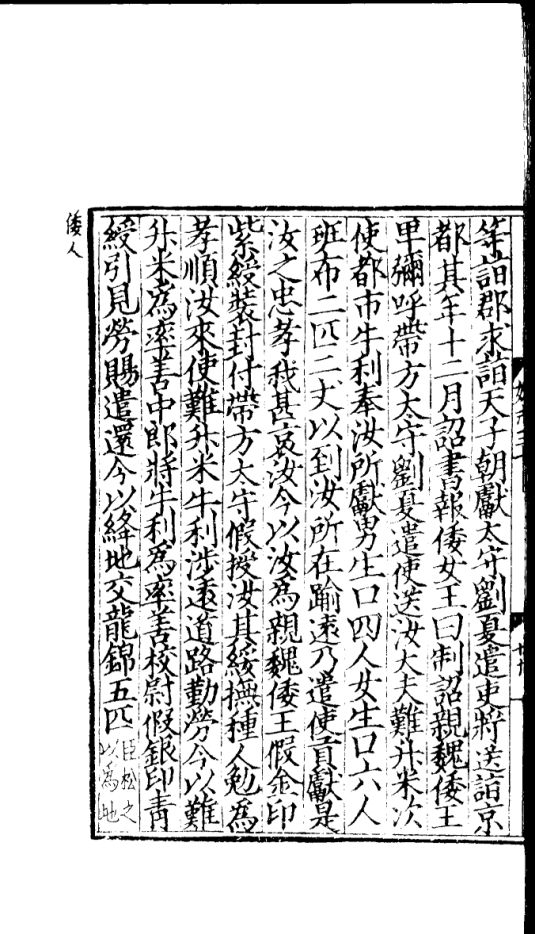 等詣郡求詣天子朝獻太守劉夏遣吏將送詣京
都其年十二月詔書報倭女王曰制詔親魏倭王
卑彌呼帶方太守劉夏遣使送汝大夫難升米次
使都市牛利奉汝所獻男生口四人女生口六人
班布二匹二丈以到汝所在踰遠乃遣使貢獻是
汝之忠孝我甚哀汝今以汝爲親魏倭王假金印
紫綬裝封付帶方太守假授汝其綏撫種人勉爲
孝順汝來使難升米牛利涉遠道路勤勞今以難
升米爲率善中郎將牛利爲率善校尉假銀印青
綬引見勞賜遣還今以絳地交龍錦五匹臣松之
以爲地
倭人